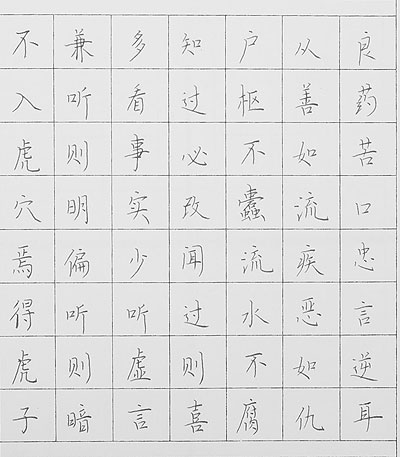 良药苦口忠言逆耳
从善如流疾恶如仇
户枢不蠹流水不腐
知过必改闻过则喜
多看事实少听虚言
兼听则明偏听则暗
不入虎穴焉得虎子